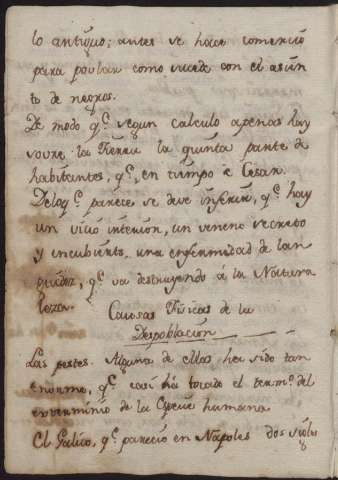 lo antiguo; antes se hace comercio
para poblar como sucede con el asien
to de negros.
De modo q.e segun calculo apenas hay
sovre la tierra la quinta parte de
habitantes, q.e, en tiempo de Cesar.
De lo q.e parece se deve inferir, q.e hay
un vicio interior, un veneno secreto
y incubierto, una enfermedad de lan
guidez, q.e va destruyendo á la Natura
leza.
Causas Fisicas de la
Despoblacion
Las pestes. Alguna de ellas ha sido tan
enorme, q.e casi há tocado el term.o del
exterminio de la Especie humana
El Galico, q.e pareció en Napoles dos siglos